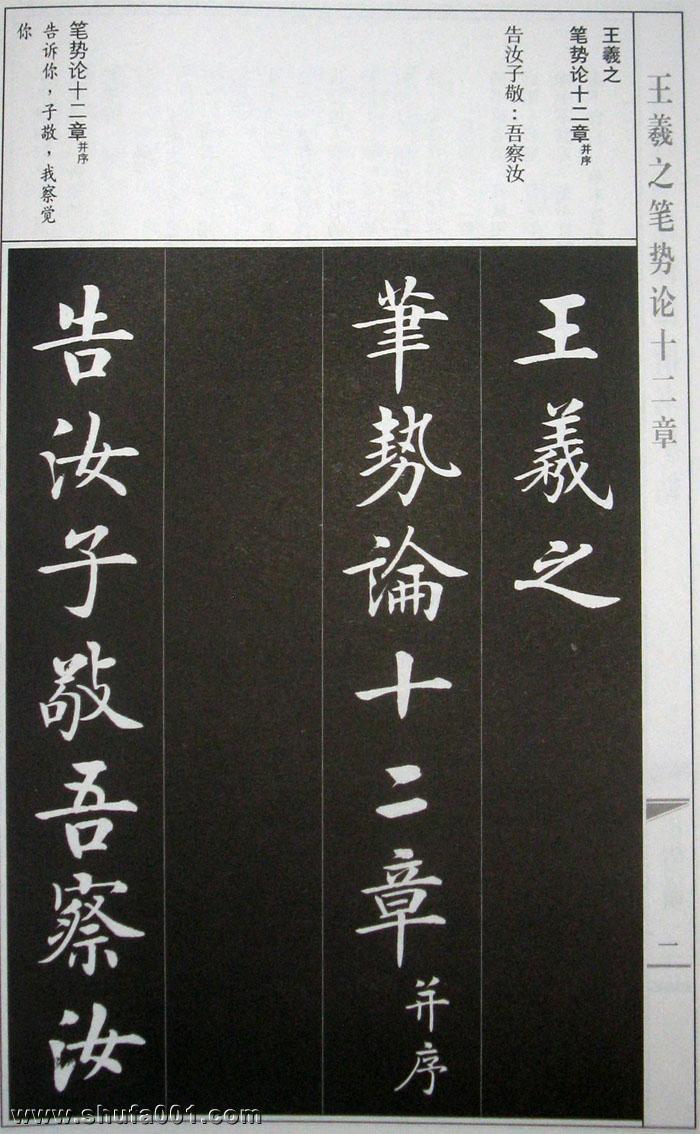 王羲之笔势论十二章
一
王羲之
笔势论十二章并序
告汝子敬：吾察汝
笔势论十二章并序
告诉你，子敬，我察觉
你
王羲之
筆勢論十二章并序
告汝子敬吾察汝
www.shufa001.com